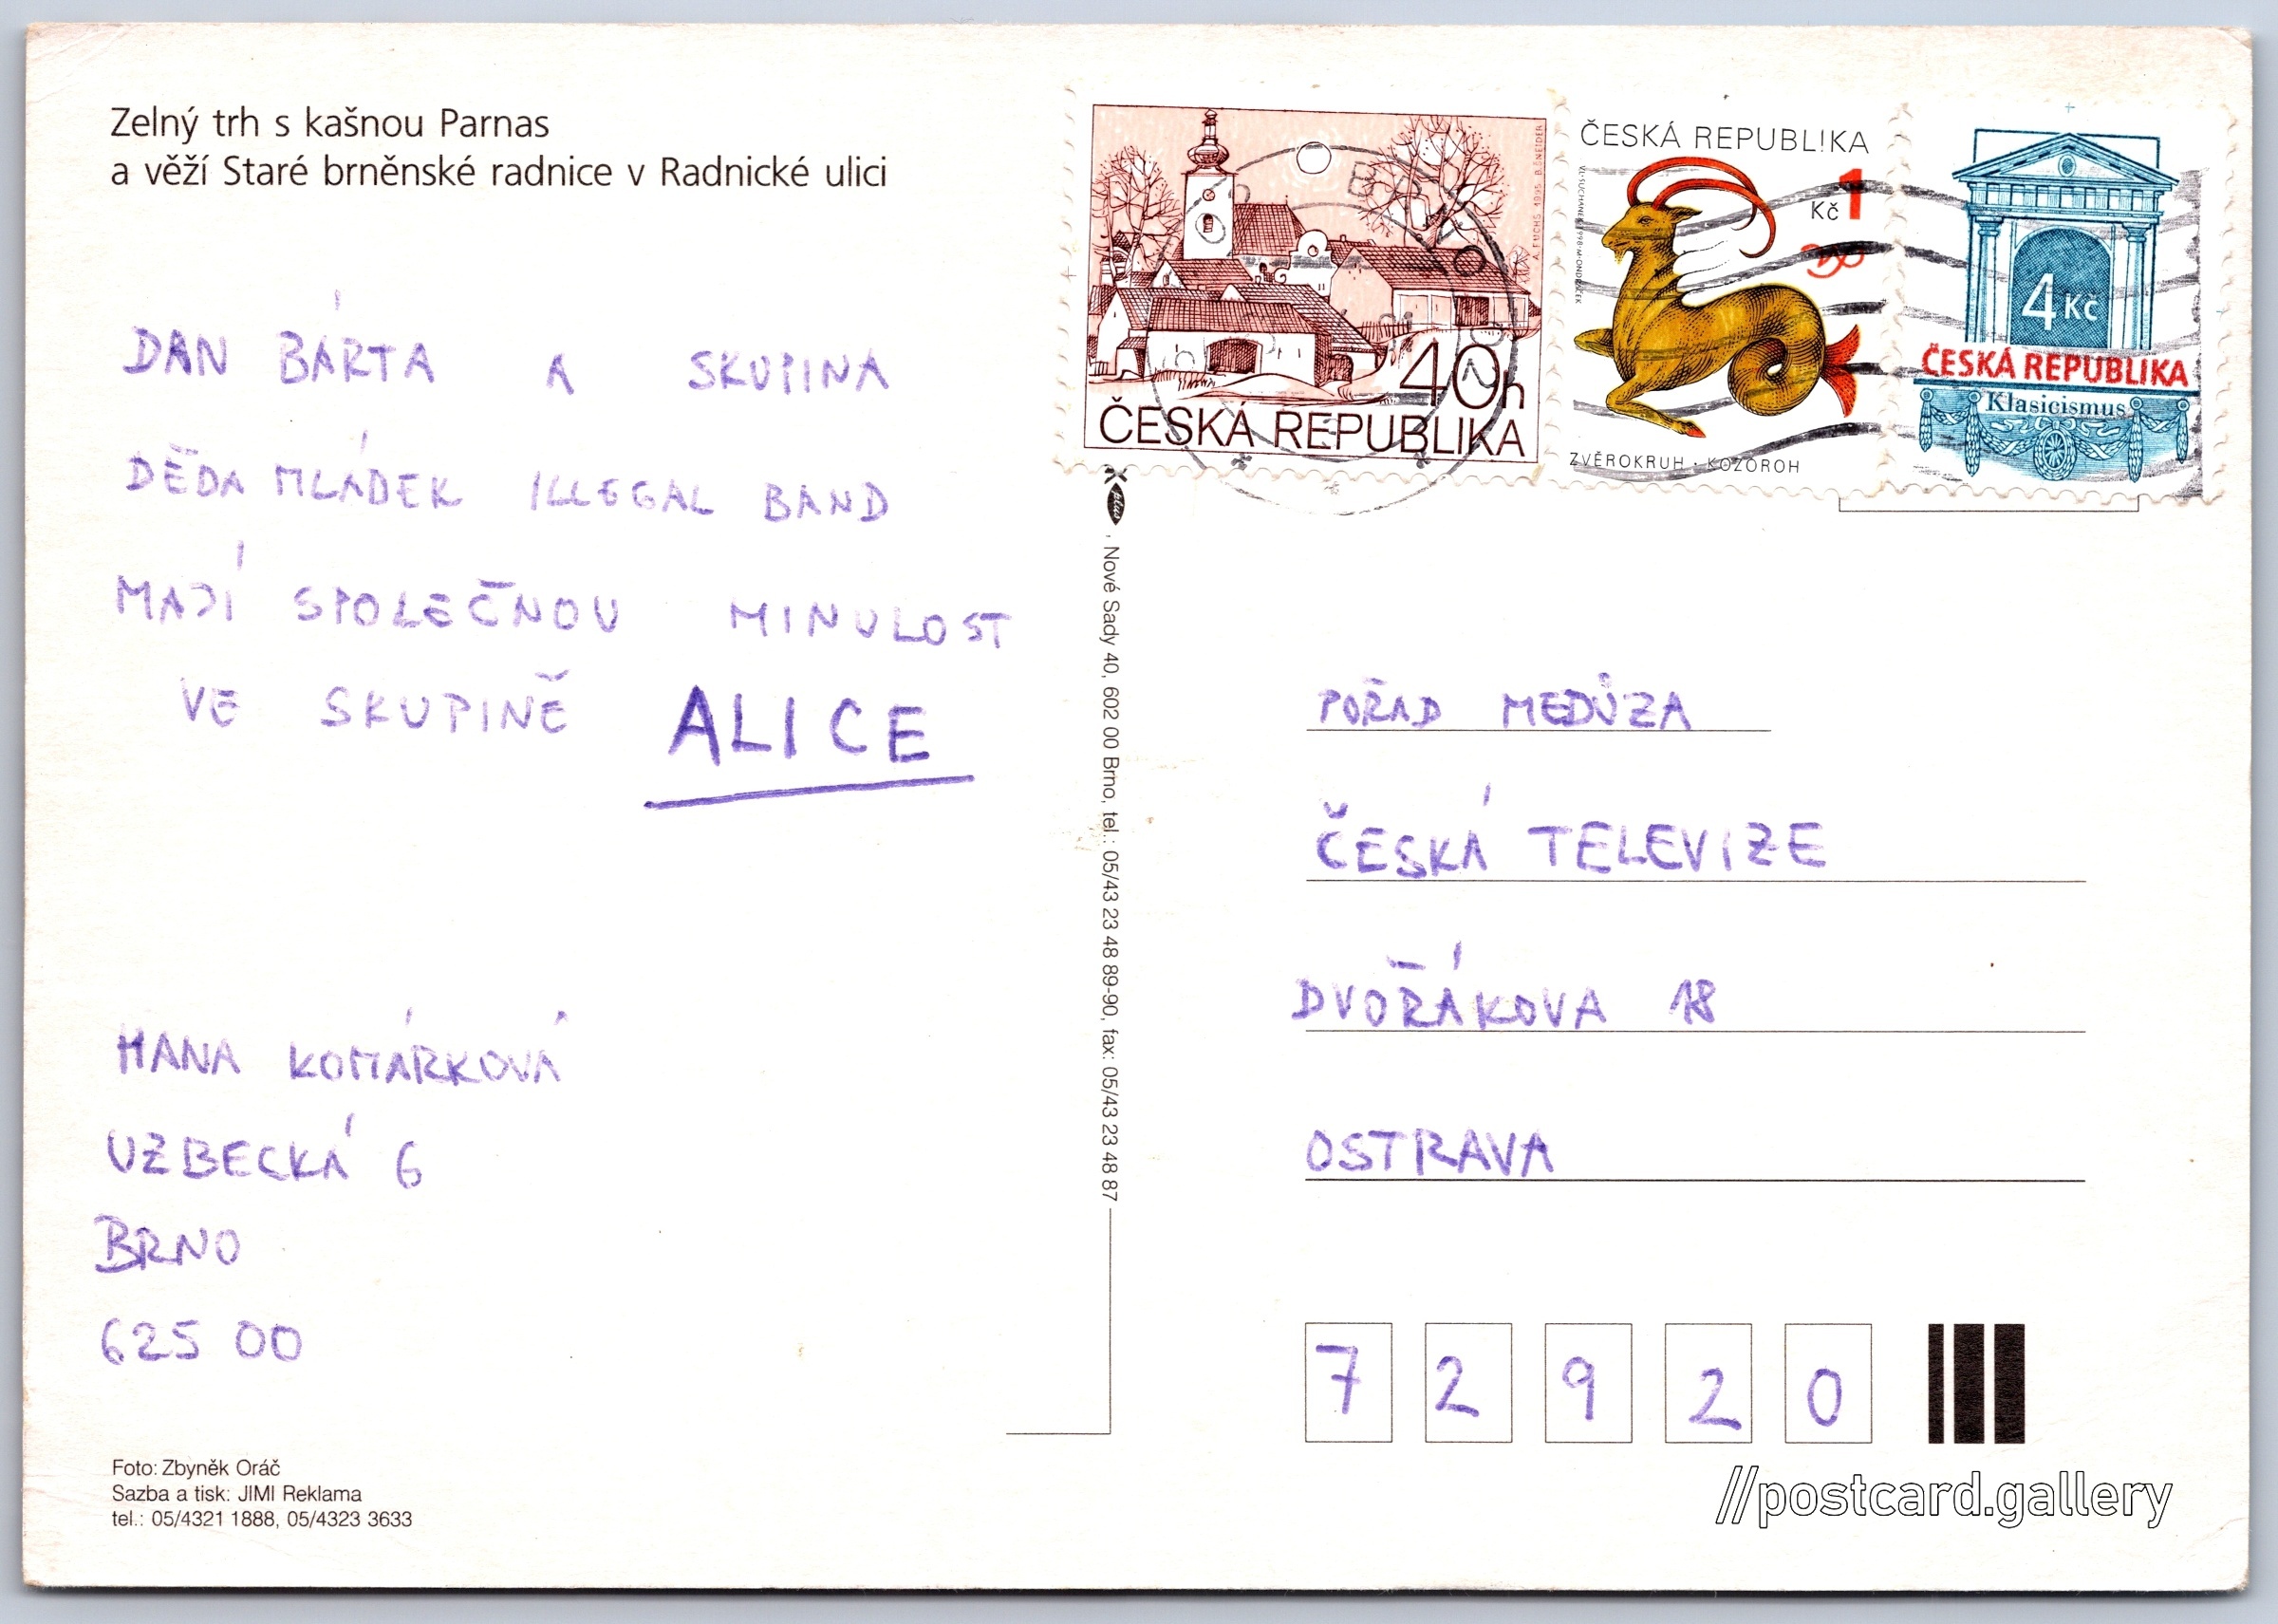 Zelný trh s kašnou Parnas
a věží Staré brněnské radnice v Radnické ulici
DAN BÁRTA A SKUPINA
DĚDA MLÁDEK ILLEGAL BAND
MAJÍ SPOLEČNOU MINULOST
VE SKUPINĚ ALICE
HANA KOMÁRKOVÁ
UZBECKÁ 6
BRNO
625 00
Foto: Zbyněk Oráč
Sazba a tisk: JIMI Reklama
tel.: 05/4321 1888, 05/4323 3633
, Nové Sady 40, 602 00 Brno, tel.: 05/43 23 48 89-90, fax: 05/43 23 48 87
40h
ČESKÁ REPUBLIKA
A. FUCHS 1995 B. ŠNEIDER
ČESKÁ REPUBLIKA
1
Kč
ZVĚROKRUH · KOZOROH
4 Kč
ČESKÁ REPUBLIKA
Klasicismus
BRNO
POŘAD MEDŮZA
ČESKÁ TELEVIZE
DVOŘÁKOVA 18
OSTRAVA
7 2 9 2 0
//postcard.gallery